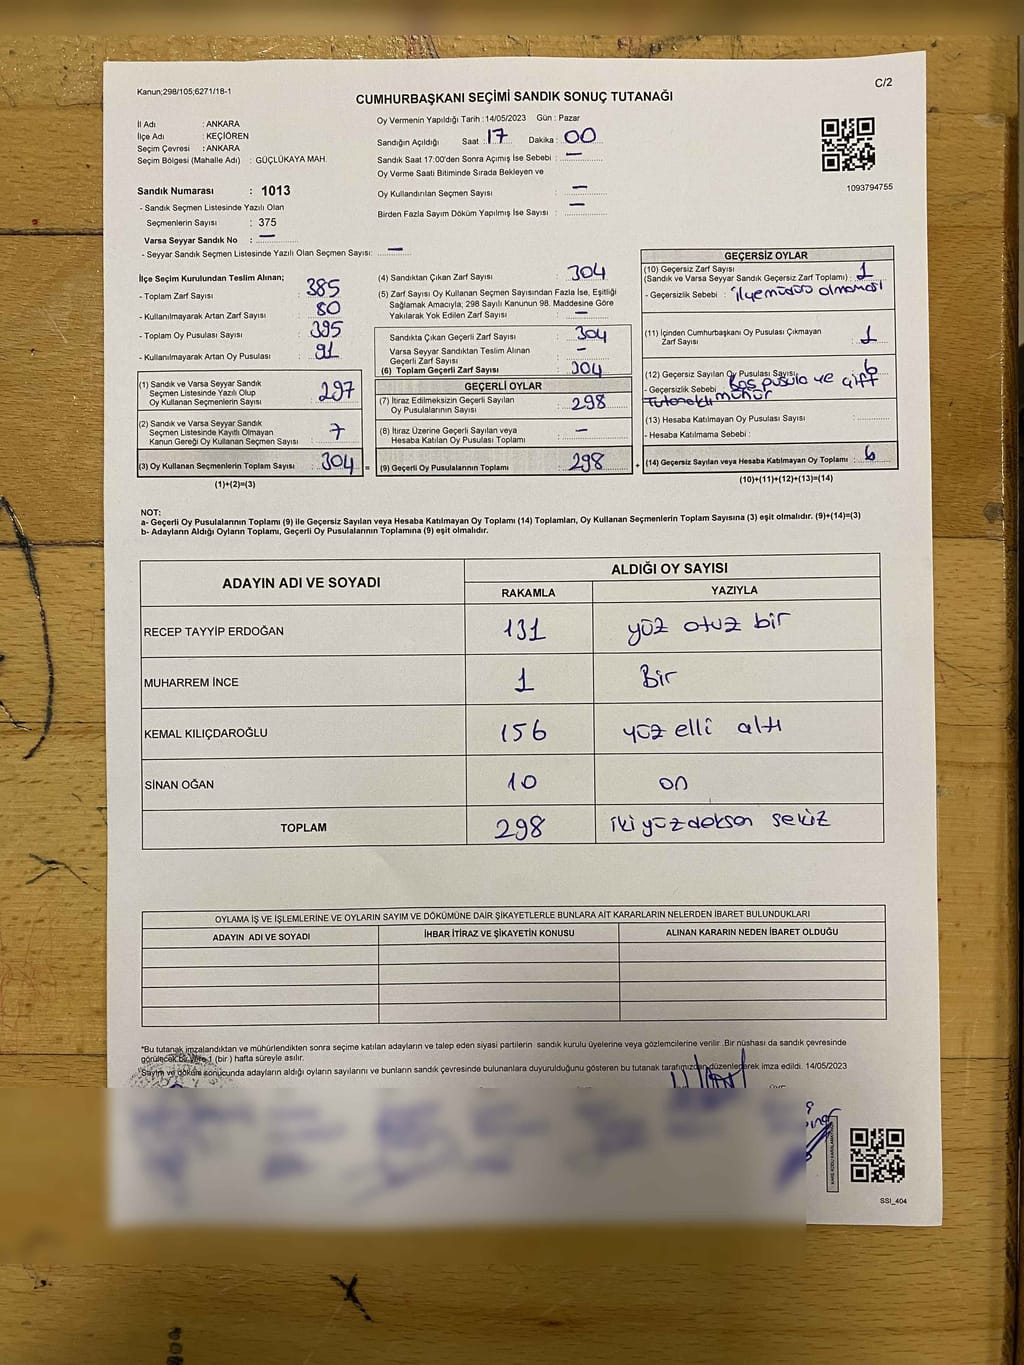 Kanun;298/105;6271/18-1
C/2
CUMHURBAŞKANI SEÇİMİ SANDIK SONUÇ TUTANAĞI
İl Adı : ANKARA
İlçe Adı : KEÇİÖREN
Seçim Çevresi : ANKARA
Seçim Bölgesi (Mahalle Adı) : GÜÇLÜKAYA MAH.
Sandık Numarası : 1013
- Sandık Seçmen Listesinde Yazılı Olan
Seçmenlerin Sayısı : 375
Varsa Seyyar Sandık No : —
- Seyyar Sandık Seçmen Listesinde Yazılı Olan Seçmen Sayısı: —
Oy Vermenin Yapıldığı Tarih : 14/05/2023 Gün : Pazar
Sandığın Açıldığı Saat : 17 Dakika : 00
Sandık Saat 17:00'den Sonra Açımış İse Sebebi : —
Oy Verme Saati Bitiminde Sırada Bekleyen ve
Oy Kullandırılan Seçmen Sayısı : —
Birden Fazla Sayım Döküm Yapılmış İse Sayısı : —
1093794755
İlçe Seçim Kurulundan Teslim Alınan;
- Toplam Zarf Sayısı : 385
- Kullanılmayarak Artan Zarf Sayısı : 80
- Toplam Oy Pusulası Sayısı : 395
- Kullanılmayarak Artan Oy Pusulası : 91
(1) Sandık ve Varsa Seyyar Sandık
Seçmen Listesinde Yazılı Olup
Oy Kullanan Seçmenlerin Sayısı : 297
(2) Sandık ve Varsa Seyyar Sandık
Seçmen Listesinde Kayıtlı Olmayan
Kanun Gereği Oy Kullanan Seçmen Sayısı : 7
(3) Oy Kullanan Seçmenlerin Toplam Sayısı : 304 =
(1)+(2)=(3)
(4) Sandıktan Çıkan Zarf Sayısı : 304
(5) Zarf Sayısı Oy Kullanan Seçmen Sayısından Fazla İse, Eşitliği
Sağlamak Amacıyla; 298 Sayılı Kanunun 98. Maddesine Göre
Yakılarak Yok Edilen Zarf Sayısı : —
Sandıkta Çıkan Geçerli Zarf Sayısı : 304
Varsa Seyyar Sandıktan Teslim Alınan
Geçerli Zarf Sayısı : -
(6) Toplam Geçerli Zarf Sayısı : 304
GEÇERLİ OYLAR
(7) İtiraz Edilmeksizin Geçerli Sayılan
Oy Pusulalarının Sayısı : 298
(8) İtiraz Üzerine Geçerli Sayılan veya
Hesaba Katılan Oy Pusulası Toplamı : —
(9) Geçerli Oy Pusulalarının Toplamı : 298 +
GEÇERSİZ OYLAR
(10) Geçersiz Zarf Sayısı
(Sandık ve Varsa Seyyar Sandık Geçersiz Zarf Toplamı) : 1
- Geçersizlik Sebebi : olmaması
(11) İçinden Cumhurbaşkanı Oy Pusulası Çıkmayan
Zarf Sayısı : 1
(12) Geçersiz Sayılan Oy Pusulası Sayısı
- Geçersizlik Sebebi Boş pusula ve çift
mühür
(13) Hesaba Katılmayan Oy Pusulası Sayısı :
- Hesaba Katılmama Sebebi :
(14) Geçersiz Sayılan veya Hesaba Katılmayan Oy Toplamı : 6
(10)+(11)+(12)+(13)=(14)
NOT:
a- Geçerli Oy Pusulalarının Toplamı (9) ile Geçersiz Sayılan veya Hesaba Katılmayan Oy Toplamı (14) Toplamları, Oy Kullanan Seçmenlerin Toplam Sayısına (3) eşit olmalıdır. (9)+(14)=(3)
b- Adayların Aldığı Oyların Toplamı, Geçerli Oy Pusulalarının Toplamına (9) eşit olmalıdır.
ADAYIN ADI VE SOYADI
ALDIĞI OY SAYISI
RAKAMLA YAZIYLA
RECEP TAYYİP ERDOĞAN 131 yüz otuz bir
MUHARREM İNCE 1 Bir
KEMAL KILIÇDAROĞLU 156 yüz elli altı
SİNAN OĞAN 10 on
TOPLAM 298 iki yüz doksan sekiz
OYLAMA İŞ VE İŞLEMLERİNE VE OYLARIN SAYIM VE DÖKÜMÜNE DAİR ŞİKAYETLERLE BUNLARA AİT KARARLARIN NELERDEN İBARET BULUNDUKLARI
ADAYIN ADI VE SOYADI İHBAR İTİRAZ VE ŞİKAYETİN KONUSU ALINAN KARARIN NEDEN İBARET OLDUĞU
*Bu tutanak imzalandıktan ve mühürlendikten sonra seçime katılan adayların ve talep eden siyasi partilerin sandık kurulu üyelerine veya gözlemcilerine verilir .Bir nüshası da sandık çevresinde
görülecek bir yere 1 (bir ) hafta süreyle asılır.
Sayım ve döküm sonucunda adayların aldığı oyların sayılarını ve bunların sandık çevresinde bulunanlara duyurulduğunu gösteren bu tutanak tarafımızdan düzenlenerek imza edildi. 14/05/2023
SSI_404